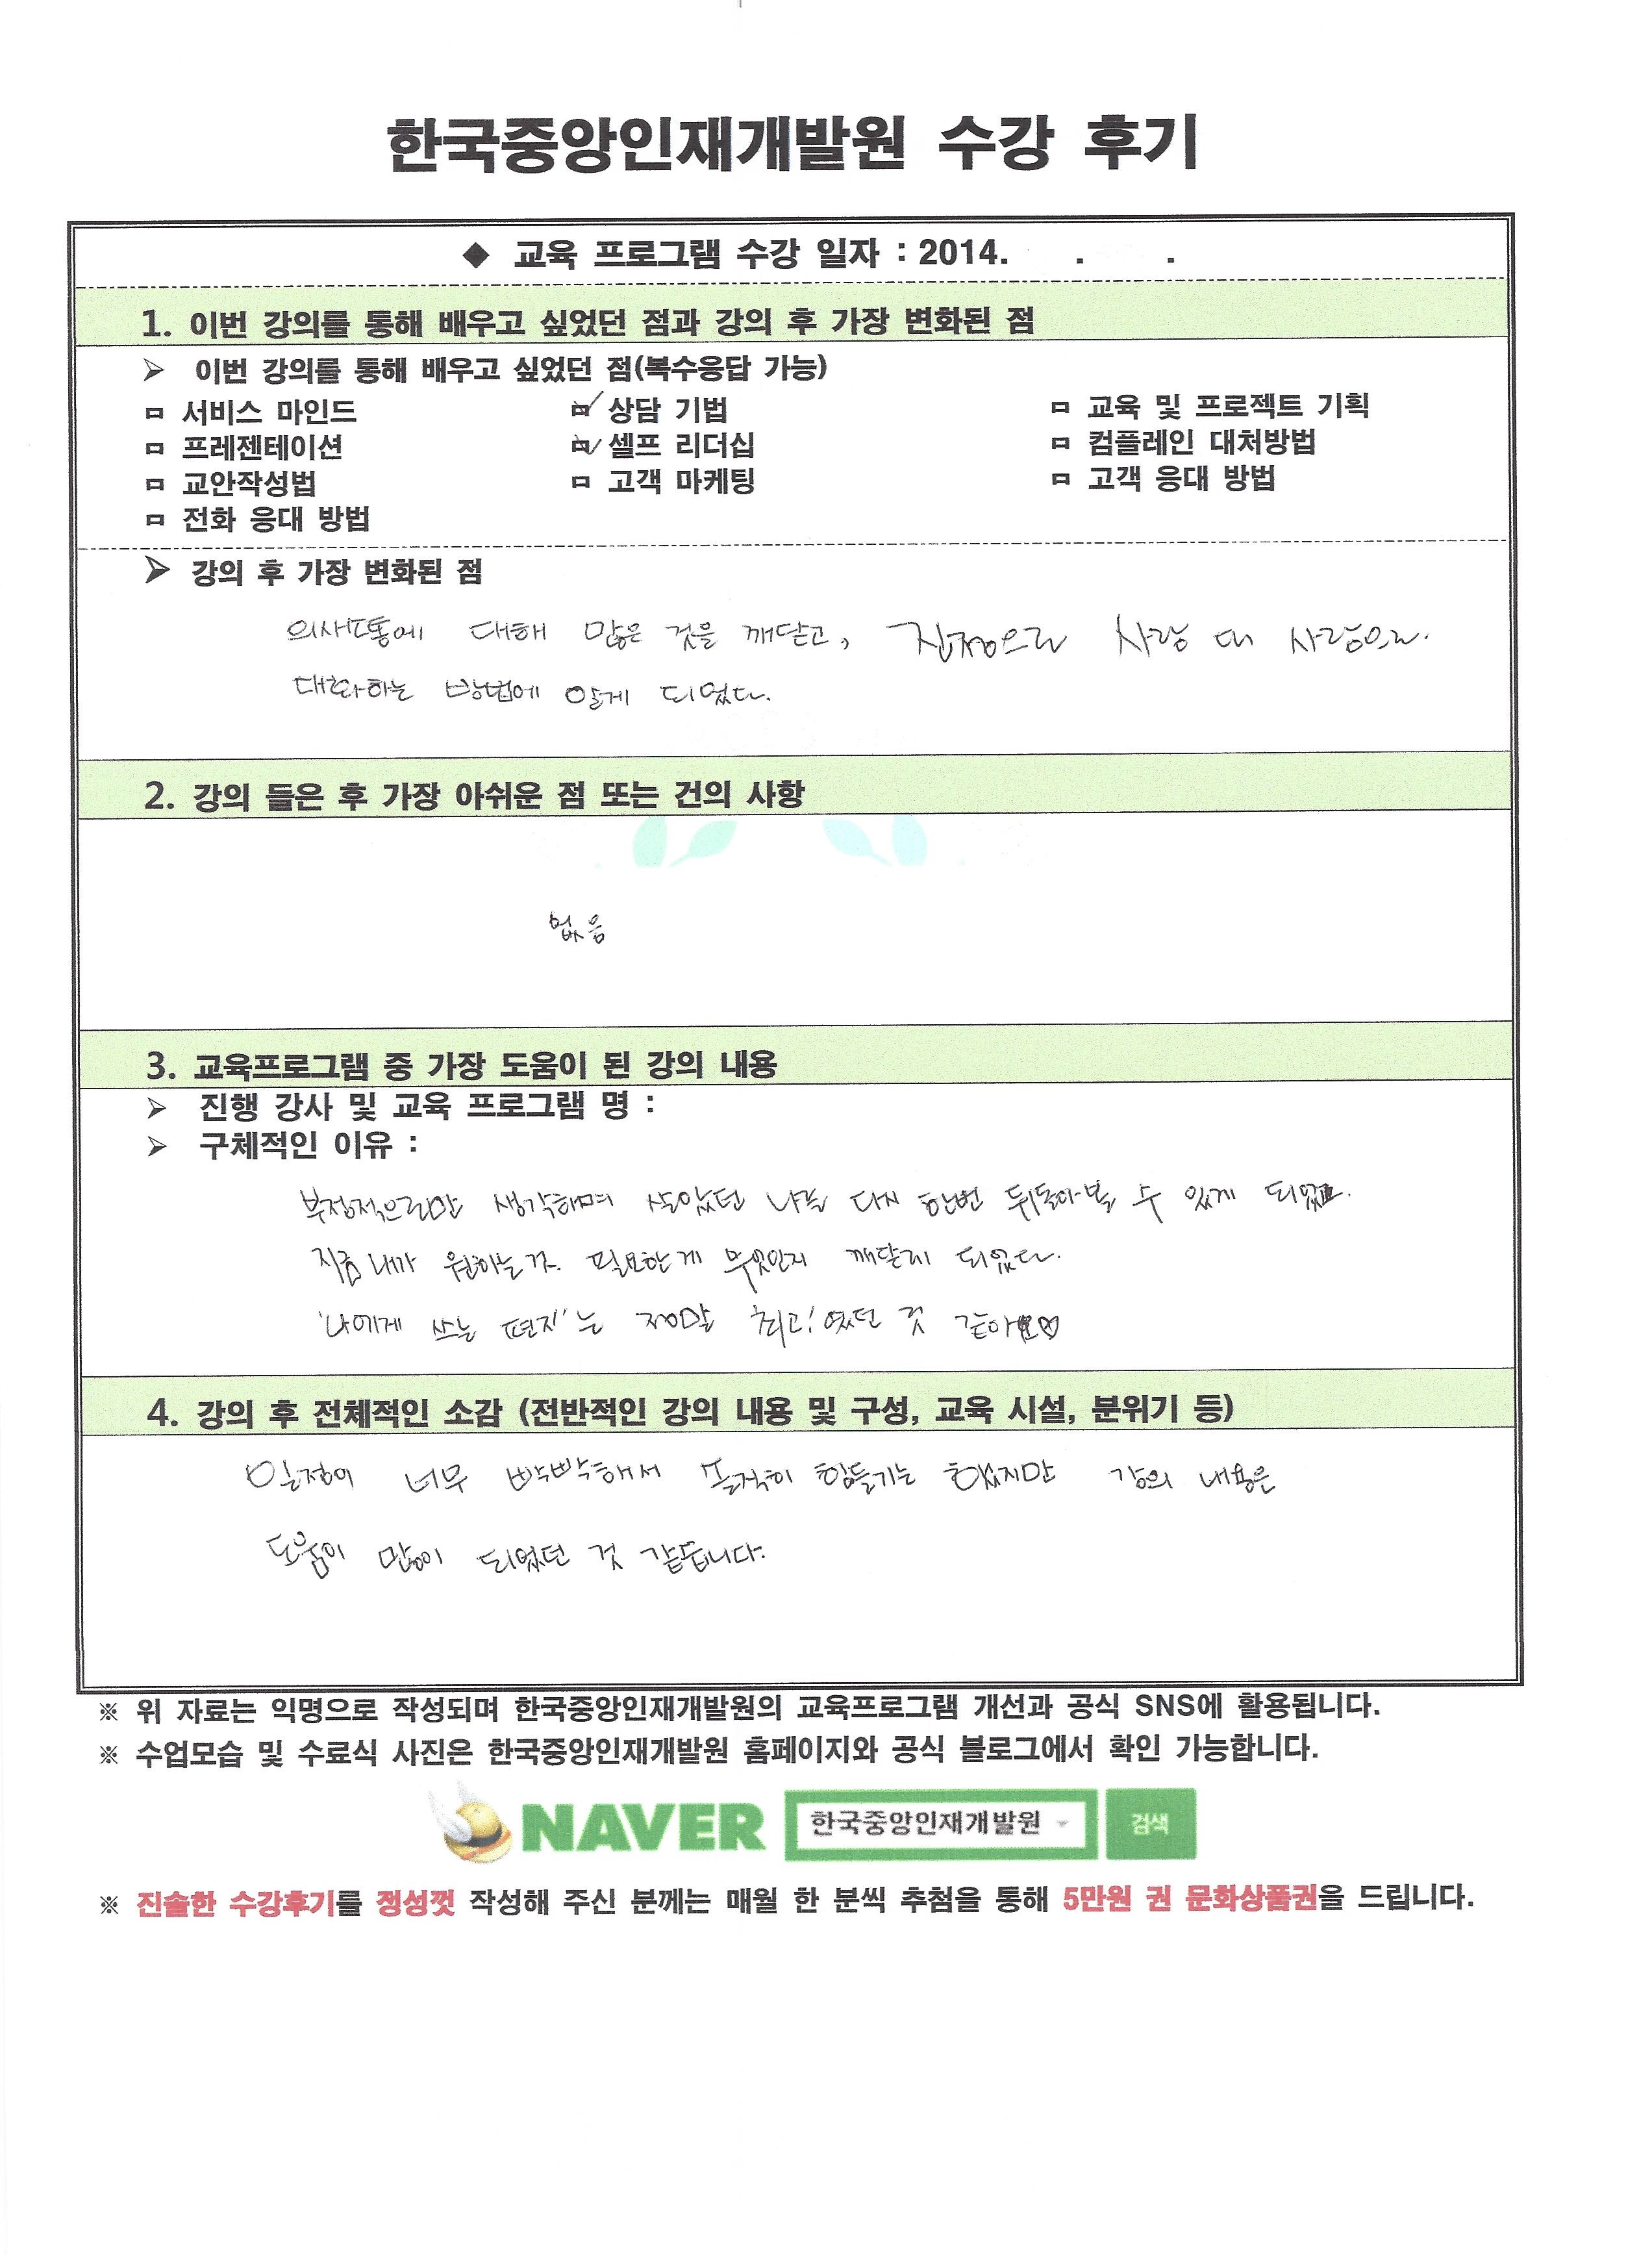 한국중앙인재개발원 수강 후기
◆ 교육 프로그램 수강 일자 : 2014. . .
1. 이번 강의를 통해 배우고 싶었던 점과 강의 후 가장 변화된 점
➢ 이번 강의를 통해 배우고 싶었던 점(복수응답 가능)
□ 서비스 마인드 ☑ 상담 기법 □ 교육 및 프로젝트 기획
□ 프레젠테이션 ☑ 셀프 리더십 □ 컴플레인 대처방법
□ 교안작성법 □ 고객 마케팅 □ 고객 응대 방법
□ 전화 응대 방법
➢ 강의 후 가장 변화된 점
의사소통에 대해 많은 것을 깨닫고, 진정으로 사람 대 사람으로.
대화하는 방법에 알게 되었다.
2. 강의 들은 후 가장 아쉬운 점 또는 건의 사항
없음
3. 교육프로그램 중 가장 도움이 된 강의 내용
➢ 진행 강사 및 교육 프로그램 명 :
➢ 구체적인 이유 :
부정적으로만 생각하며 살았던 나를 다시 한번 뒤돌아볼 수 있게 되었고.
지금 내가 원하는것. 필요한게 무엇인지 깨닫게 되었다.
'나에게 쓰는 편지'는 정말 최고!였던 것 같아요♡
4. 강의 후 전체적인 소감 (전반적인 강의 내용 및 구성, 교육 시설, 분위기 등)
일정이 너무 빡빡해서 솔직히 힘들기는 했지만 강의 내용은
도움이 많이 되었던 것 같습니다.
※ 위 자료는 익명으로 작성되며 한국중앙인재개발원의 교육프로그램 개선과 공식 SNS에 활용됩니다.
※ 수업모습 및 수료식 사진은 한국중앙인재개발원 홈페이지와 공식 블로그에서 확인 가능합니다.
NAVER 한국중앙인재개발원 검색
※ 진솔한 수강후기를 정성껏 작성해 주신 분께는 매월 한 분씩 추첨을 통해 5만원 권 문화상품권을 드립니다.